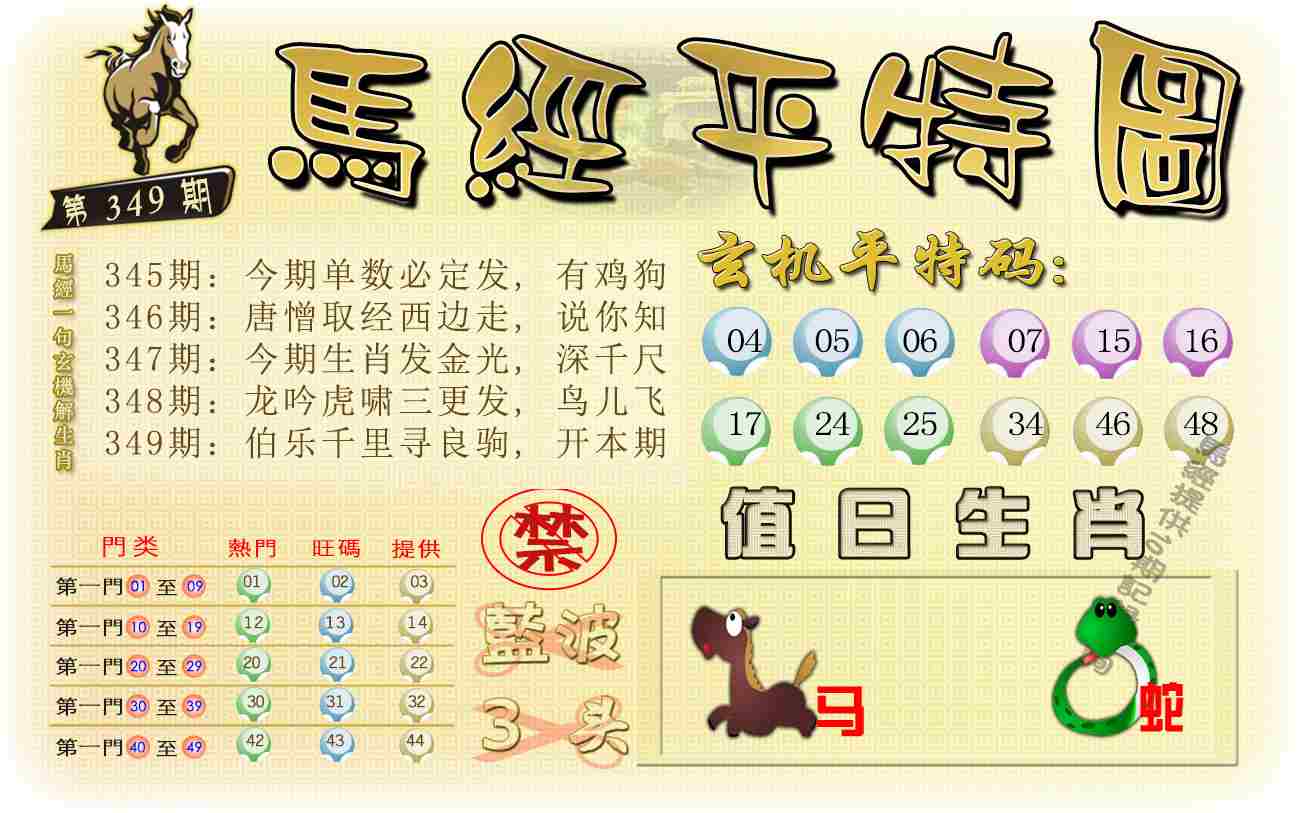 馬經平特圖
第349期
馬經一句玄機解生肖
345期：今期单数必定发, 有鸡狗
346期：唐憎取经西边走, 说你知
347期：今期生肖发金光, 深千尺
348期：龙吟虎啸三更发, 鸟儿飞
349期：伯乐千里寻良驹, 开本期
玄机平特码:
04 05 06 07 15 16
17 24 25 34 46 48
值日生肖
马 蛇
門类 熱門 旺碼 提供
第一門 01 至 09 01 02 03
第一門 10 至 19 12 13 14
第一門 20 至 29 20 21 22
第一門 30 至 39 30 31 32
第一門 40 至 49 42 43 44
禁
藍波
3头
馬經提供
期記